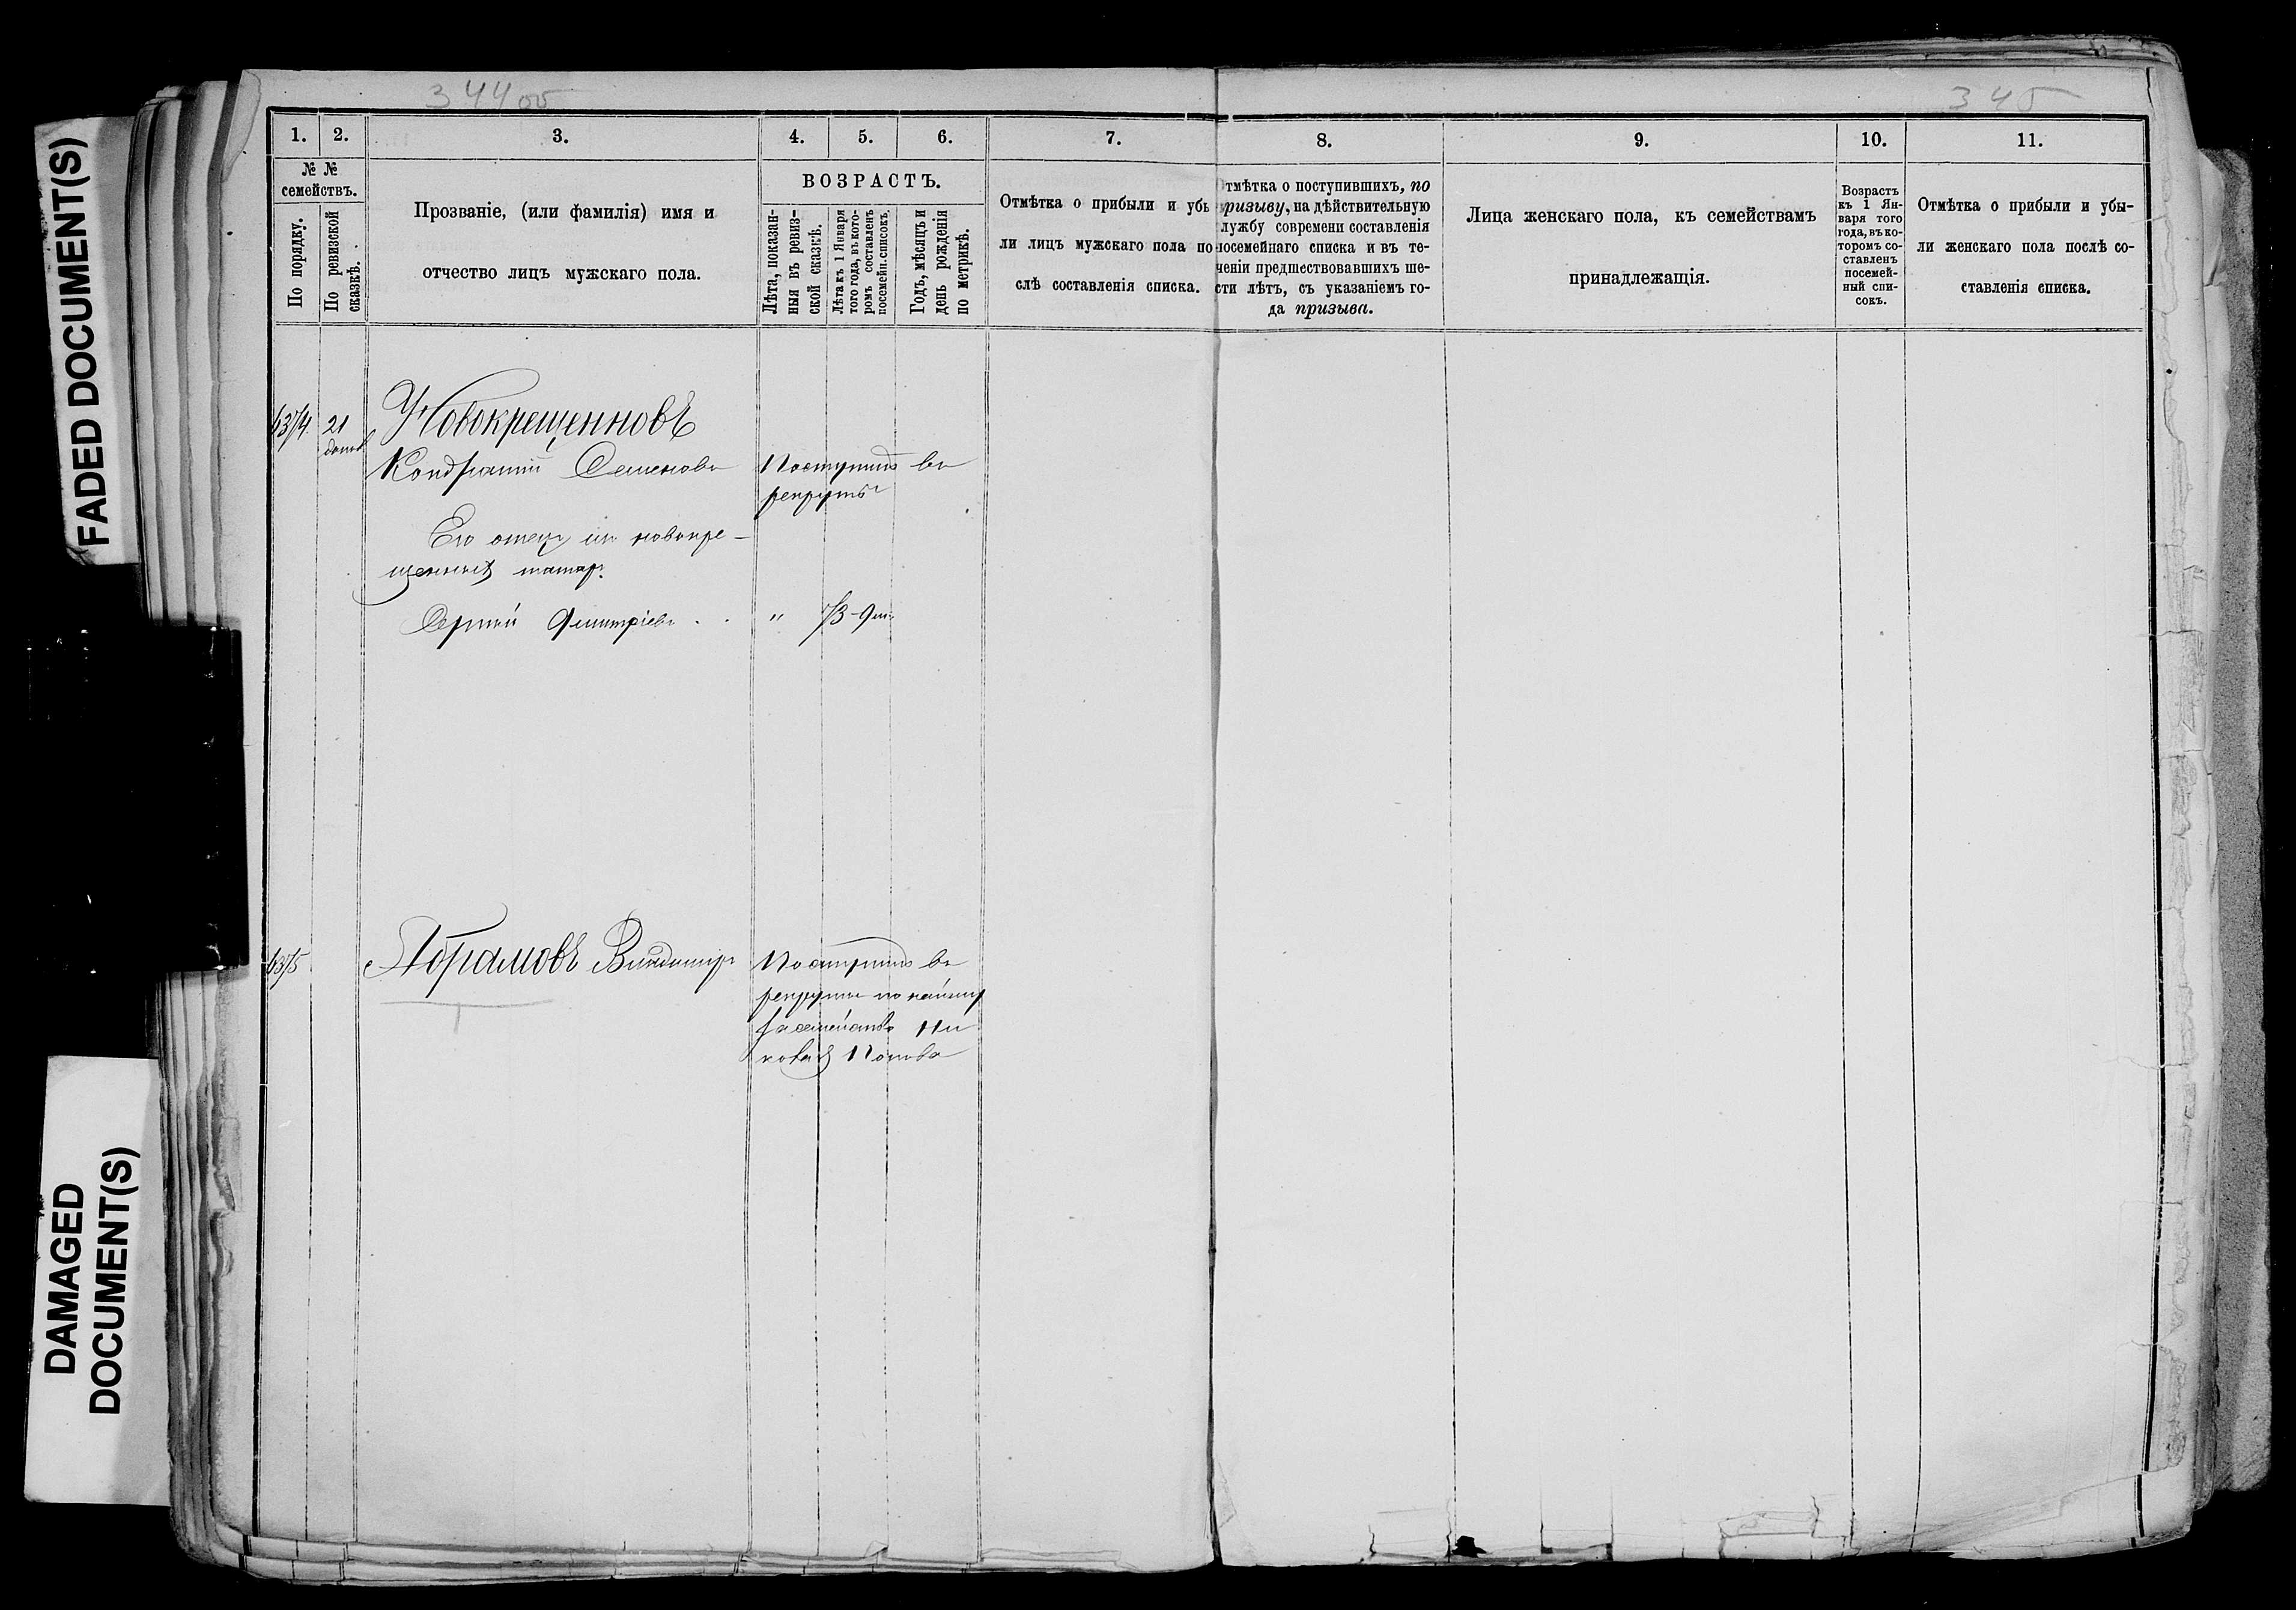 344 об
345
FADED DOCUMENT(S)
DAMAGED
DOCUMENT(S)
1.
2.
3.
4.
5.
6.
7.
8.
9.
10.
11.
№ №
семействъ.
По порядку.
По ревизской
сказкѣ.
Прозваніе, (или фамилія) имя и
отчество лицъ мужскаго пола.
ВОЗРАСТЪ.
Лѣта, показан-
ныя въ ревиз-
ской сказкѣ.
Лѣта къ 1 Января
того года, въ кото-
ромъ составленъ
посемейн. списокъ.
Годъ, мѣсяцъ и
день рожденія
по метрикѣ.
Отмѣтка о прибыли и убы
ли лицъ мужскаго пола по
слѣ составленія списка.
тмѣтка о поступившихъ, по
ризыву, на дѣйствительную
лужбу современи составленія
посемейнаго списка и въ те-
ченіи предшествовавшихъ ше-
сти лѣтъ, съ указаніемъ го-
да призыва.
Лица женскаго пола, къ семействамъ
принадлежащія.
Возрастъ
къ 1 Ян-
варя того
года, въ ко-
торомъ со-
ставленъ
посемей-
ный спи-
сокъ.
Отмѣтка о прибыли и убы-
ли женскаго пола послѣ со-
ставленія списка.
6374
21
Новокрещенновъ
Кондратий Семеновъ
Поступилъ въ
рекруты
Его отецъ изъ новокре-
щенныхъ татаръ
Сергѣй Дмитріевъ . . " 73
6375
Абрамовъ Владимиръ
Поступилъ въ
рекруты по найму
за семейство Ни
колая Попова